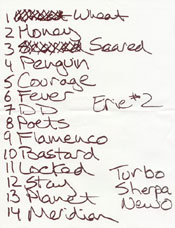 1 Wheat
2 Honey
3 Scared
4 Penguin
5 Courage
6 Fever
7 DD
Erie #2
8 Poets
9 Flamenco
10 Bastard
11 Locked
12 Stay
13 Planet
14 Meridian
Turbo
Sherpa
New O